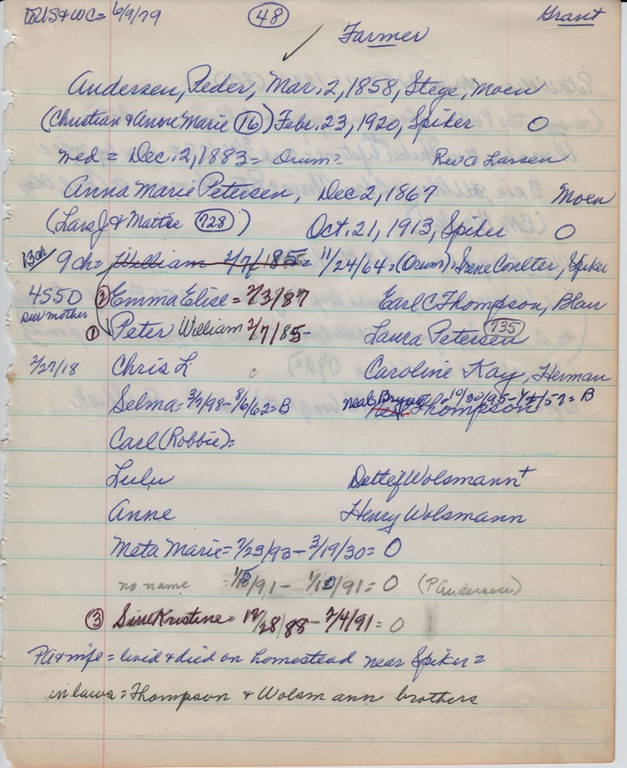 6/9/79 (48) Grant
Farmer
Andersen, Peder, Mar. 2, 1858, Stege, Moen
(Christian & Anne Marie (16)) Febr. 23, 1920, Spiker O
med = Dec. 2, 1883 = Orum? Rev A Larsen
Anna Marie Petersen, Dec 2, 1867 Moen
(Lars J & Mattie (728)) Oct. 21, 1913, Spiker O
13ch 9ch = William 2/7/85 = 11/24/64 = (Orum) = Irene Coulter, Spiker
4S5D (2) Emma Elise = 2/3/87 Earl C Thompson, Blair
sur mother (1) Peter William 2/7/85 - Laura Petersen (735)
2/27/18 Chris L Caroline Kay, Herman
Selma = 3/7/98 - 8/6/62 = B Neal Bryan 10/30/95 - 1/4/57 = B Thompson
Carl (Robbie) =
Lulu Detlef Wolsmann +
Anne Henry Wolsmann
Meta Marie = 7/23/93 - 3/19/30 = O
no name = 1/18/91 - 1/10/91 = O (P Andersen)
(3) Sine Kristine = 12/28/88 - 7/4/91 = O
Pa & wife = livid & died on homestead near Spiker =
inlaws = Thompson & Wolsmann brothers